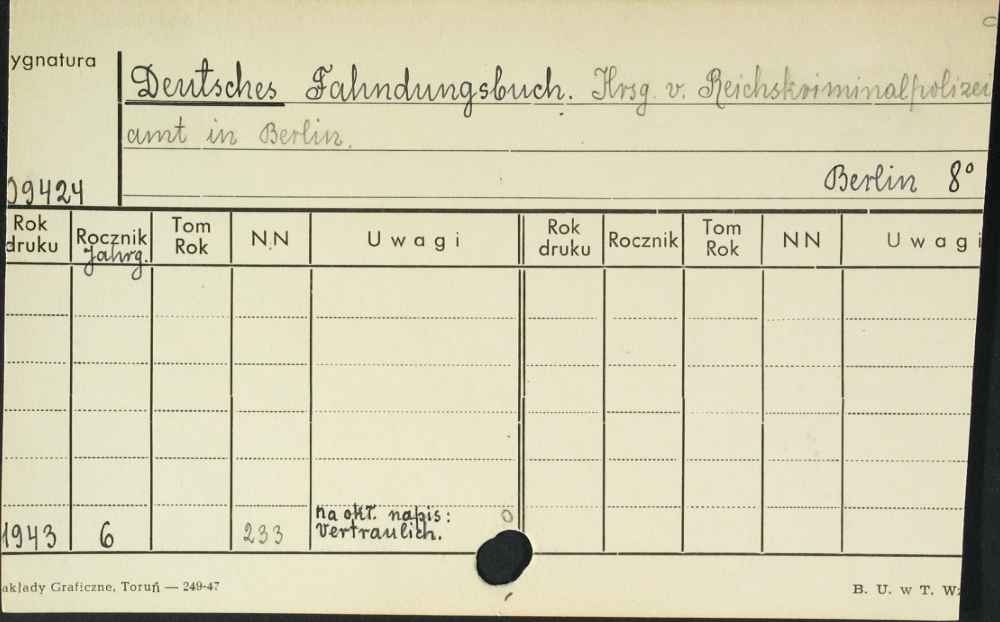 ygnatura
Deutsches Fahndungsbuch. Hrsg. v. Reichskriminalpolizei
amt in Berlin.
Berlin 8°
09424
Rok druku Rocznik Jahrg. Tom Rok NN Uwagi Rok druku Rocznik Tom Rok NN Uwagi
na okł. napis:
1943 6 233 Vertraulich.
akłady Graficzne, Toruń — 249-47 B. U. w T. W